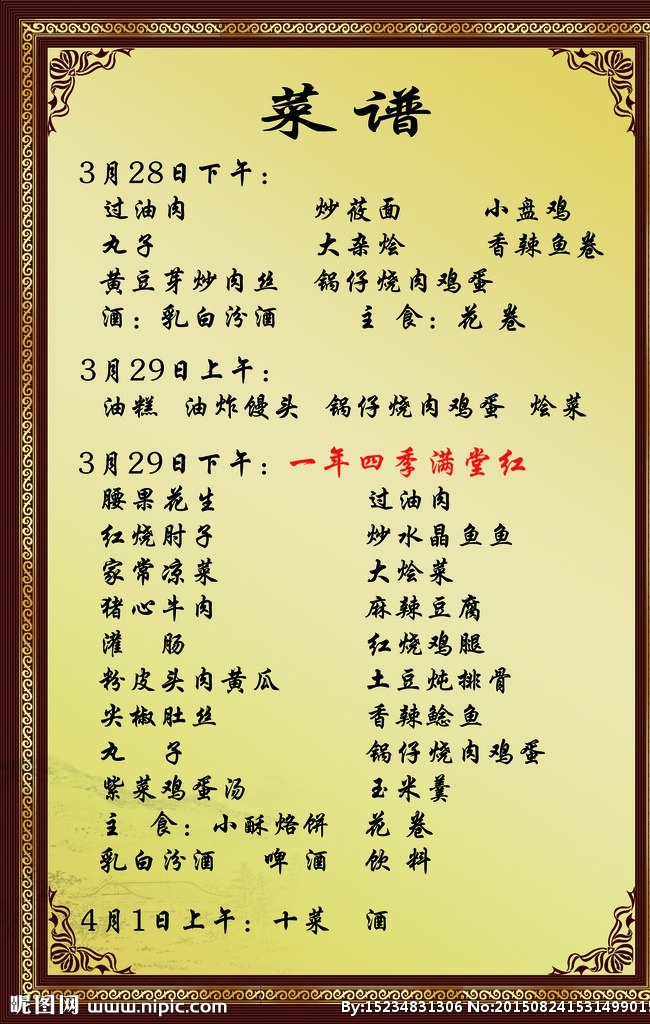 菜谱
3月28日下午：
过油肉 炒莜面 小盘鸡
丸子 大杂烩 香辣鱼卷
黄豆芽炒肉丝 锅仔烧肉鸡蛋
酒：乳白汾酒 主食：花卷
3月29日上午：
油糕 油炸馒头 锅仔烧肉鸡蛋 烩菜
3月29日下午：一年四季满堂红
腰果花生 过油肉
红烧肘子 炒水晶鱼鱼
家常凉菜 大烩菜
猪心牛肉 麻辣豆腐
灌肠 红烧鸡腿
粉皮头肉黄瓜 土豆炖排骨
尖椒肚丝 香辣鲶鱼
丸子 锅仔烧肉鸡蛋
紫菜鸡蛋汤 玉米羹
主食：小酥烙饼 花卷
乳白汾酒 啤酒 饮料
4月1日上午：十菜 酒
昵图网 www.nipic.com By:15234831306 No:201508241531499015